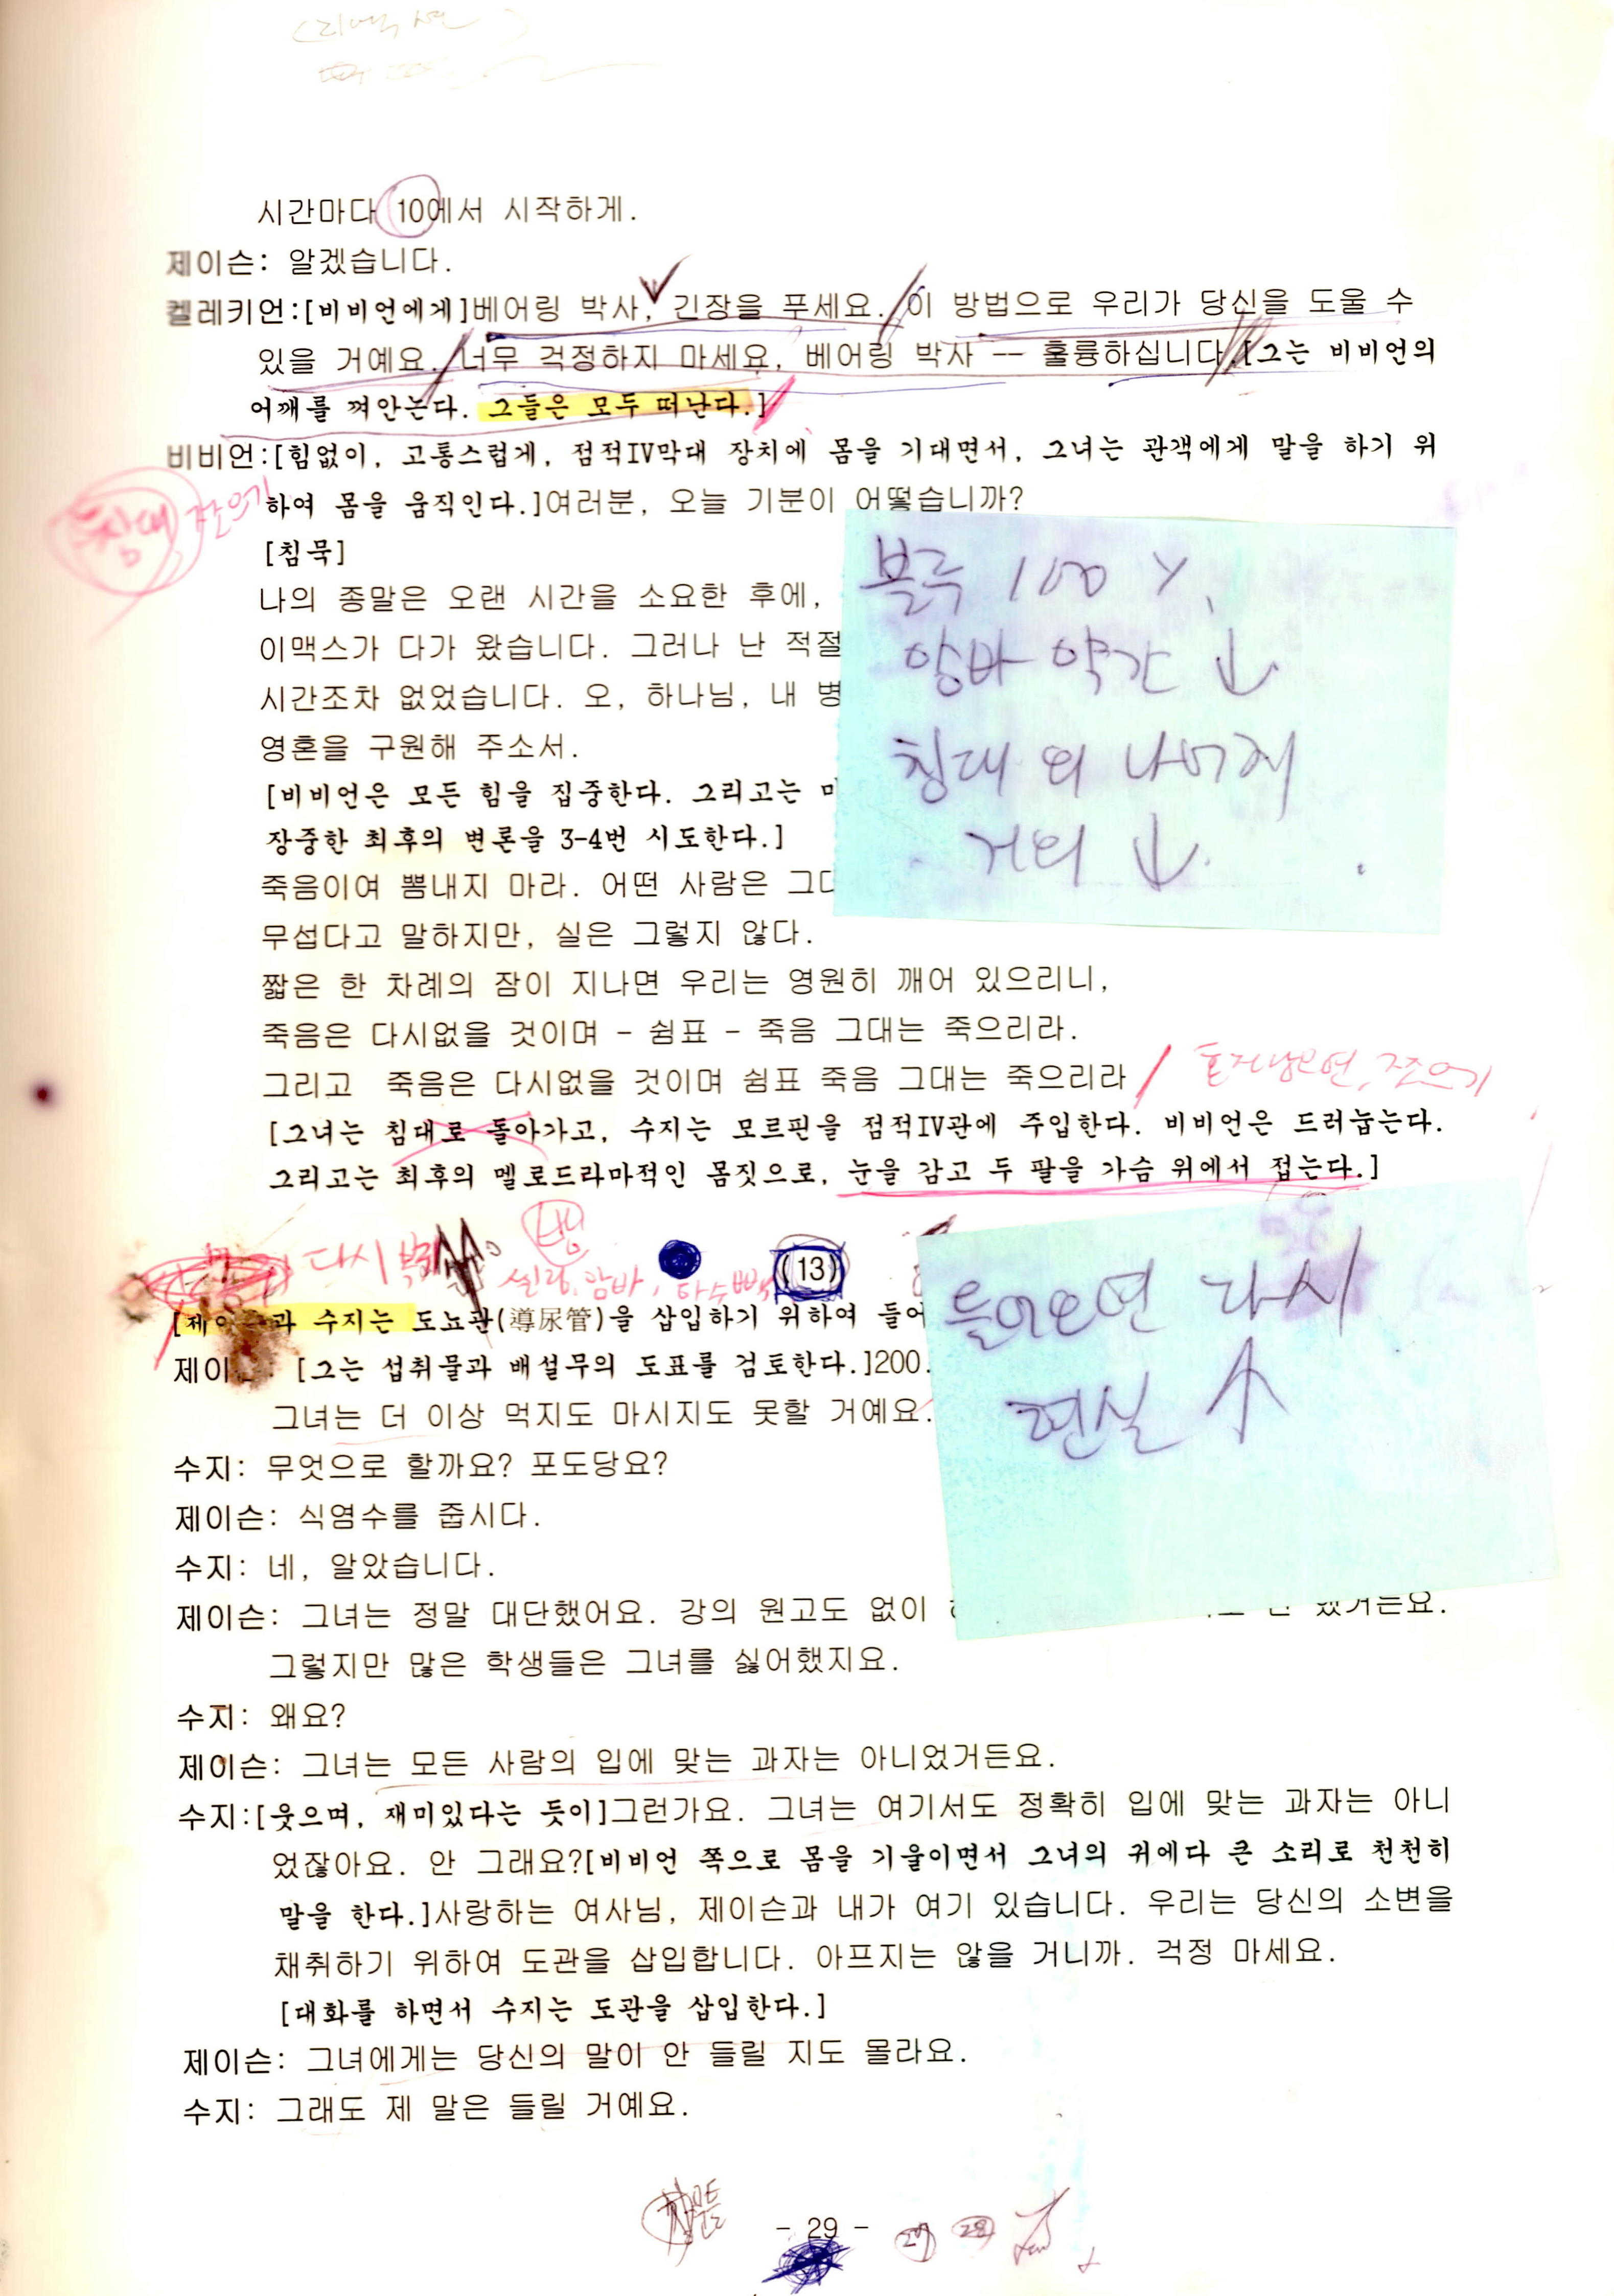 시간마다 10에서 시작하게.
제이슨: 알겠습니다.
켈레키언:[비비언에게]베어링 박사, 긴장을 푸세요. 이 방법으로 우리가 당신을 도울 수
있을 거예요. 너무 걱정하지 마세요, 베어링 박사 -- 훌륭하십니다.[그는 비비언의
어깨를 껴안는다. 그들은 모두 떠난다.]
비비언:[힘없이, 고통스럽게, 점적IV막대 장치에 몸을 기대면서, 그녀는 관객에게 말을 하기 위
침대
하여 몸을 움직인다.]여러분, 오늘 기분이 어떻습니까?
[침묵]
나의 종말은 오랜 시간을 소요한 후에,
이맥스가 다가 왔습니다. 그러나 난 적절
시간조차 없었습니다. 오, 하나님, 내 병
영혼을 구원해 주소서.
[비비언은 모든 힘을 집중한다. 그리고는
장중한 최후의 변론을 3-4번 시도한다.]
죽음이여 뽐내지 마라. 어떤 사람은
무섭다고 말하지만, 실은 그렇지 않다.
블루 100
암바 약간 ↓
침대 외 나머지
거의 ↓.
짧은 한 차례의 잠이 지나면 우리는 영원히 깨어 있으리니,
죽음은 다시없을 것이며 - 쉼표 - 죽음 그대는 죽으리라.
그리고 죽음은 다시없을 것이며 쉼표 죽음 그대는 죽으리라
[그녀는 침대로 돌아가고, 수지는 모르핀을 점적IV관에 주입한다. 비비언은 드러눕는다.
그리고는 최후의 멜로드라마적인 몸짓으로, 눈을 감고 두 팔을 가슴 위에서 접는다.]
다시
암바,
(13)
과 수지는 도뇨관(導尿管)을 삽입하기 위하여 들어
제이 : [그는 섭취물과 배설무의 도표를 검토한다.]200.
그녀는 더 이상 먹지도 마시지도 못할 거예요.
들어오면 다시
현실 ↑
수지: 무엇으로 할까요? 포도당요?
제이슨: 식염수를 줍시다.
수지: 네, 알았습니다.
제이슨: 그녀는 정말 대단했어요. 강의 원고도 없이
그렇지만 많은 학생들은 그녀를 싫어했지요.
수지: 왜요?
제이슨: 그녀는 모든 사람의 입에 맞는 과자는 아니었거든요.
수지:[웃으며, 재미있다는 듯이]그런가요. 그녀는 여기서도 정확히 입에 맞는 과자는 아니
었잖아요. 안 그래요?[비비언 쪽으로 몸을 기울이면서 그녀의 귀에다 큰 소리로 천천히
말을 한다.]사랑하는 여사님, 제이슨과 내가 여기 있습니다. 우리는 당신의 소변을
채취하기 위하여 도관을 삽입합니다. 아프지는 않을 거니까. 걱정 마세요.
[대화를 하면서 수지는 도관을 삽입한다.]
제이슨: 그녀에게는 당신의 말이 안 들릴 지도 몰라요.
수지: 그래도 제 말은 들릴 거예요.
- 29 -
27 28